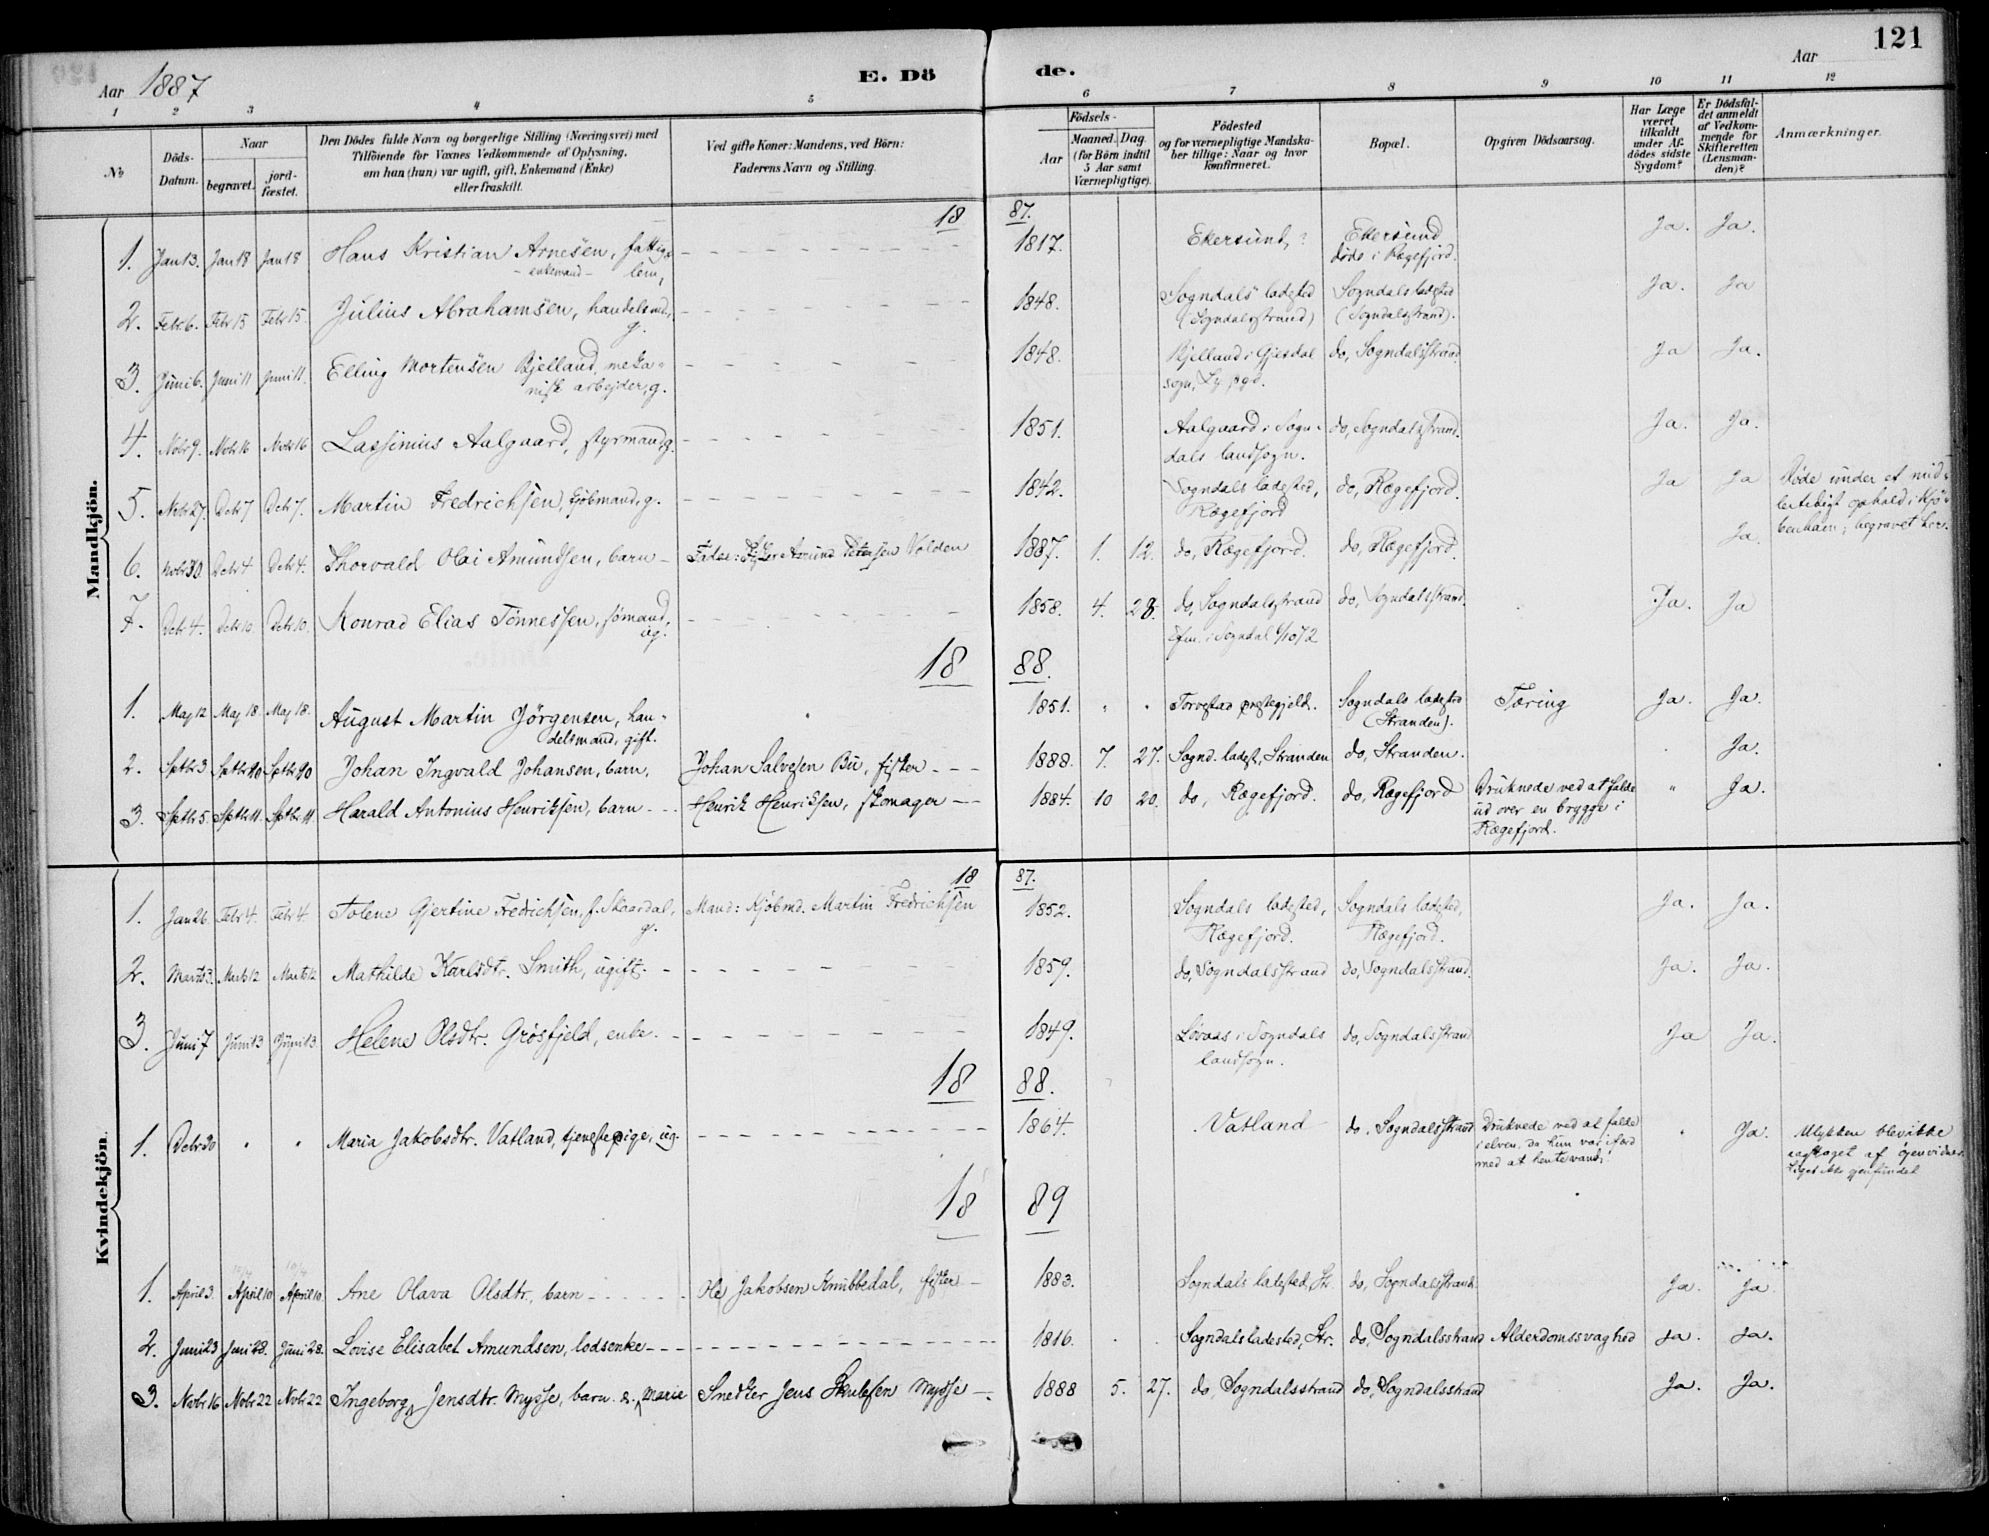 121
Aar 1887 E. Döde. Aar
1 2 3 4 5 6 7 8 9 10 11 12
No
Döds-Datum.
Naar
begravet.
jord-fæstet.
Den Dödes fulde Navn og borgerlige Stilling (Næringsvei) med
Tilföiende for Voxnes Vedkommende af Oplysning,
om han (hun) var ugift, gift, Enkemand (Enke)
eller fraskilt.
Ved gifte Koner: Mandens, ved Börn:
Faderens Navn og Stilling.
Födsels-
Aar
Maaned. Dag.
(for Börn indtil
5 Aar samt
Værnepligtige).
Födested
og for værnepligtige Mandska-
ber tillige: Naar og hvor
konfirmeret.
Bopæl.
Opgiven Dödsaarsag.
Har Læge
været
tilkaldt
under Af-
dödes sidste
Sygdom?
Er Dödsfal-
det anmeldt
af Vedkom-
mende for
Skifteretten
(Lensman-
den)?
Anmærkninger.
Mandkjön.
18 87.
1. Jan 13. Jan 18 Jan 18 Hans Kristian Arnesen, fattig- 1817. Ekersund, ? Ekersund Ja. Ja.
- enkemand - lem, døde i Rægefjord.
2. Febr 6. Febr 15 Febr 15. Julius Abrahamsen, handelsmd, 1848. Sogndals ladested Sogndals ladested Ja. Ja
g. (Sogndalsstrand) (Sogndalsstrand).
3. Juni 6. Juni 11 Juni 11. Elling Mortensen Bjelland, meka- 1848. Bjelland i Gjesdal do, Sogndalsstrand Ja Ja.
nisk arbejder, g. sogn, Ly pgd.
4. Nobr 9. Nobr 16 Nobr 16 Lassinius Aalgaard, styrmand, g. 1851. Aalgaard i Sogn- do, Sogndalsstrand. Ja. Ja.
dals landsogn.
5. Nobr 27. Debr 7 Debr 7. Martin Fredrichsen, kjöbmand, g. 1842. Sogndals ladested, do, Rægefjord. Ja Ja Døde under et mid-
Rægefjord lertidigt ophold i Kjö-
benhavn; begravet her.
6. Nobr 30. Debr 4 Debr 4. Thorvald Olai Amundsen, barn - Fader: Amund Petersen Valden 1887. 1. 12. do, Rægefjord. do, Rægefjord. Ja.
7. Debr 4. Debr 10. Debr 10. Konrad Elias Tönnessen, sömand, 1858. 4. 28. do, Sogndalsstrand do, Sogndalsstrand. Ja. Ja
ug. Cfm. i Sogndal 6/10 72
18 88.
1. Maj 12 Maj 18 Maj 18. August Martin Jörgensen, han- 1851. " " Torvestad prestegjeld. Sogndals ladested Tæring Ja. Ja.
delsmand, gift. (Stranden).
2. Septbr 3 Septbr 10 Septbr 10 Johan Ingvald Johansen, barn, Johan Salvesen Bu, fisker - - - 1888. 7. 27. Sognd. ladest, Stranden do, Stranden. Ja.
3. Septbr 5. Septbr 11. Septbr 11 Harald Antonius Henriksen, barn - - Henrik Henriksen, skomager - - 1884. 10 20. do, Rægefjord. do, Rægefjord Druknede ved at falde " Ja.
ud over en brygge i
Rægefjord.
Kvindekjön.
18 87.
1. Jan 26. Febr 4. Febr 4. Tolene Gjertine Fredrichsen, f. Skaardal, Mand: Kjöbmd. Martin Fredrichsen 1852. Sogndals ladested, Sogndals ladested, Ja. Ja.
g. Rægefjord. Rægefjord.
2. Marts 3. Marts 12 Marts 12 Mathilde Karlsdtr. Smith, ugift. - 1859. do, Sogndalsstrand do, Sogndalsstrand. Ja. Ja.
3. Juni 7 Juni 13 Juni 13 Helene Olsdtr. Grösfjeld, enke. 1849. Lövaas i Sogndals do, Sogndalsstrand Ja Ja.
landsogn.
18 88.
1. Debr 30 " " Maria Jakobsdtr. Vatland, tjenestepige, ug. 1864. Vatland do, Sogndalsstrand Druknede ved at falde " Ja. Ulykken blev ikke
i elven, da hun var ifærd iagttaget af öjenvidner.
med at hente vand. Liget ikke gjenfundet
18 89
1. April 3. April 10 April 10. Ane Olava Olsdtr., barn - - - Ole Jakobsen Knubbedal, fisker - 1883. Sogndals ladested, St. do, Sogndalsstrand. Ja. Ja.
2. Juni 23 Juni 28. Juni 28. Lovise Elisabet Amundsen, lodsenke - - - 1816. Sogndals ladested, Str. do, Sogndalsstrand Alderdomssvaghed Ja. Ja.
3. Nobr 16 Nobr 22 Nobr 22 Ingeborg Jensdtr. Mysse, barn. Marie Snedker Jens Mysse - 1888 5. 27. do, Sogndalsstrand do, Sogndalsstrand Ja. Ja.